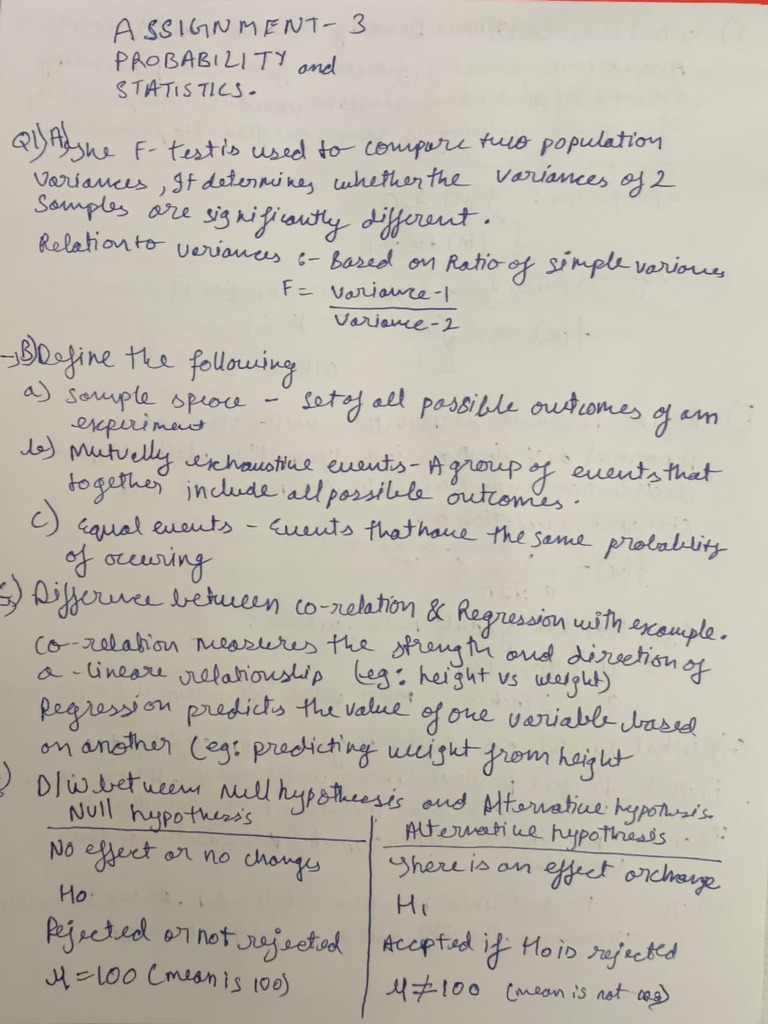 ASSIGNMENT-3
PROBABILITY and
STATISTICS.
Q1)A) The F-test is used to compare two population
variances, It determines whether the variances of 2
samples are significantly different.
Relation to variances :- Based on Ratio of simple variances
F = Variance-1
Variance-2
→B) Define the following
a) Sample space - set of all possible outcomes of an
experiment
b) Mutually exhaustive events - A group of events that
together include all possible outcomes.
c) Equal events - Events that have the same probability
of occuring
Difference between co-relation & Regression with example.
co-relation measures the strength and direction of
a - lineare relationship (eg: height vs weight)
Regression predicts the value of one variable based
on another (eg: predicting weight from height
D/W between Null hypotheosis and Alternative hypothesis.
Null hypothesis
Alternative hypothesis
No effect or no changes
There is an effect or change
Ho
H1
Rejected or not rejected
Accepted if Ho is rejected
μ = 100 (mean is 100)
μ ≠ 100 (mean is not 100)